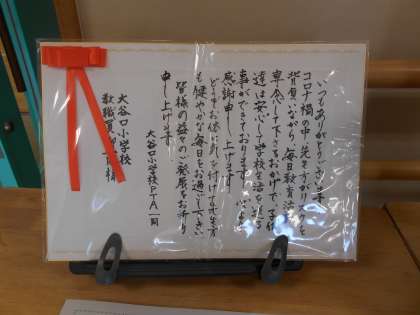 いつもありがとうございます。
コロナ禍の中、先生方がリスクを
背負いながら、毎日教育活動に
専念して下さるおかげで、子供
達は安心して学校生活を送る
事ができております。心より
感謝申し上げます。
どうぞお体に気を付けて先生方
も健やかな毎日をお過ごし下さい
皆様の益々のご発展をお祈り
申し上げます。
大谷口小学校PTA一同
大谷口小学校
教職員御一同様